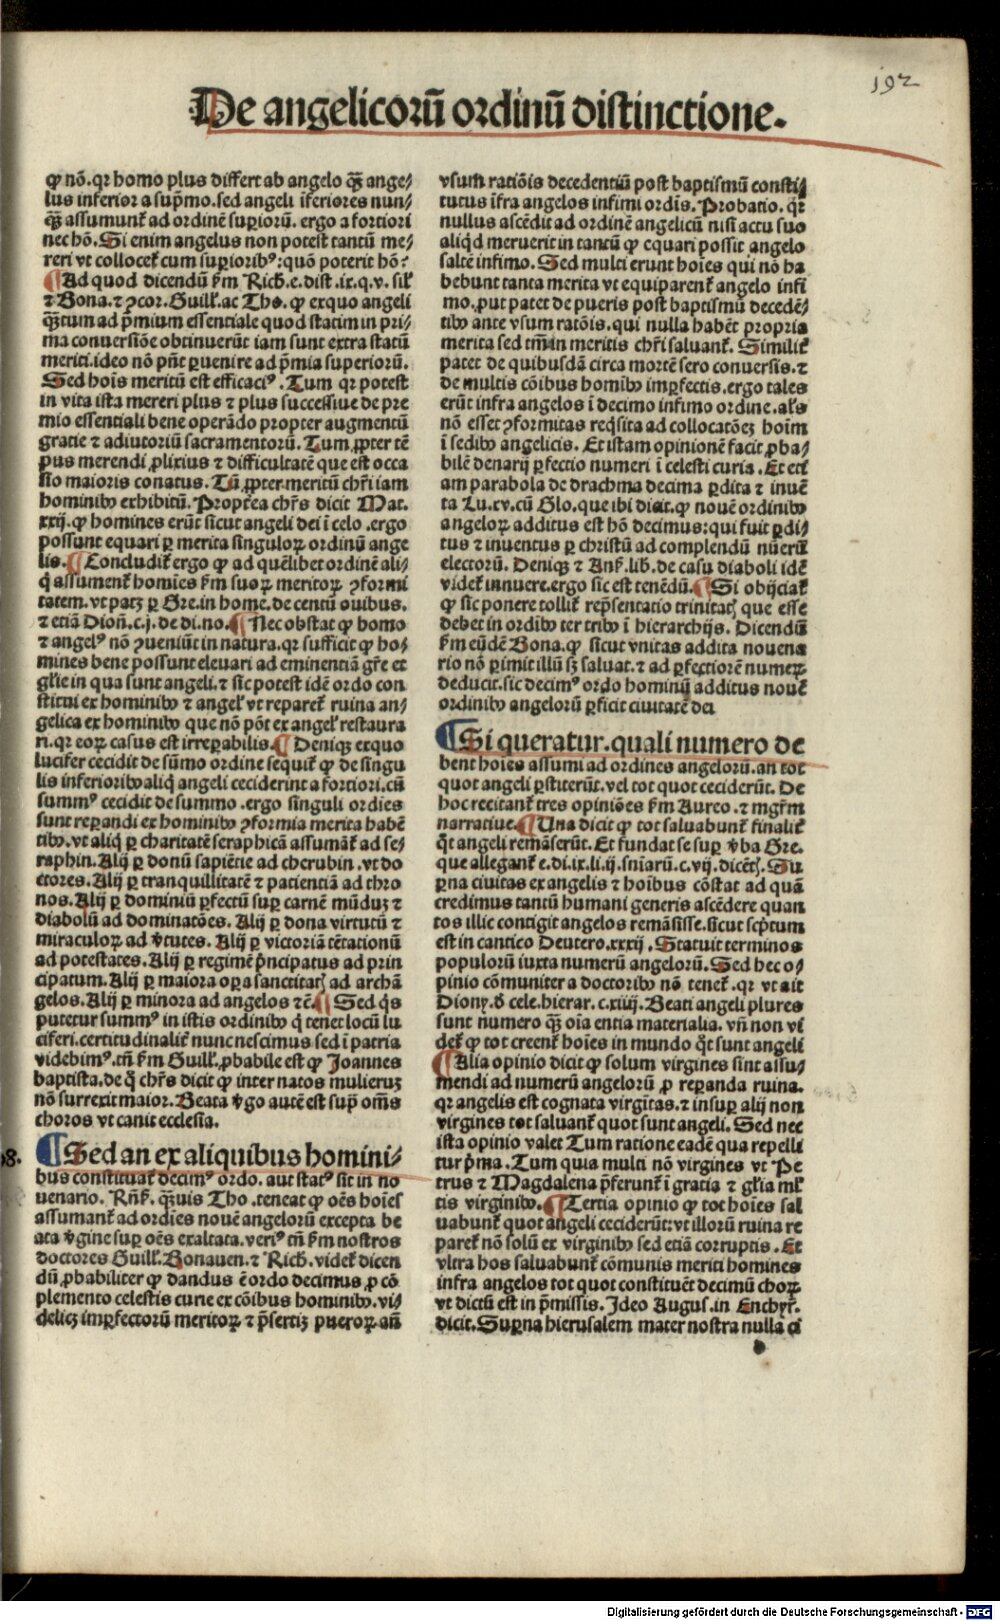 192
De angelicorū ordinū distinctione.
ꝙ nō. qꝛ homo plus differt ab angelo qȝ̄ ange⸗
lus inferior a sup̄mo. sed angeli īferiores nun⸗
qȝ̄ assumunť ad ordinē supiorū. ergo a fortiori
nec hō. Si enim angelus non potest tantū me⸗
reri vt colloceť cum superioribꝰ: quō poterit hō?
¶ Ad quod dicendū ẜm Rich. e. dist. ix. q. v. siľ
⁊ Bona. ⁊ ↄcor. Guilľ. ac Tho. ꝙ exquo angeli
qȝ̄tum ad p̄mium essentiale quod statim in pri⸗
ma conuersiōe obtinuerūt iam sunt extra statū
meriti. ideo nō pn̄t ꝑuenire ad p̄mia superiorū.
Sed hoīs meritū est efficaciꝰ. Tum qꝛ potest
in vita ista mereri plus ⁊ plus successiue de pre
mio essentiali bene operādo propter augmentū
gratie ⁊ adiutoriū sacramentorū. Tum ꝓpter tē
pus merendi ꝓlixius ⁊ difficultatē que est occa
sio maioris conatus. Tū ꝓpter meritū chr̄i iam
hominibꝰ exhibitū. Propt̄ea chr̄s dicit Mat.
xxij. ꝙ homines erūt sicut angeli dei ī celo. ergo
possunt equari ꝑ merita singuloꝝ ordinū ange
lis. ¶ Concludiť ergo ꝙ ad quēlibet ordinē ali⸗
q̇ assumenť homīes ẜm suoꝝ meritoꝝ ↄformi
tatem. vt patȝ ꝑ Gre. in home. de centū ouibus.
⁊ etiā Dion̄. c. j. de di. no. ¶ Nec obstat ꝙ homo
⁊ angelꝰ nō ↄueniūt in natura. qꝛ sufficit ꝙ ho⸗
mines bene possunt eleuari ad eminentiā gr̄e et
gľie in qua sunt angeli. ⁊ sic potest idē ordo con
stitui ex hominibꝰ ⁊ angeľ vt repareť ruina an⸗
gelica ex hominibꝰ que nō pōt ex angeľ restaura
ri. qꝛ eoꝝ casus est irreꝑabilis. ¶ Deniqȝ exquo
lucifer cecidit de sūmo ordine sequiť ꝙ de singu
lis inferioribꝰ aliq̇ angeli ceciderint a fortiori. cū
summꝰ cecidit de summo. ergo singuli ordies
sunt reꝑandi ex hominibꝰ ↄformia merita habē
tibꝰ. vt aliq̇ ꝑ charitatē seraphicā assumāť ad se⸗
raphin. Alij ꝑ donū sapiētie ad cherubin. vt do
ctores. Alij ꝑ tranquillitatē ⁊ patientiā ad thro
nos. Alij ꝑ dominiū ꝑfectū suꝑ carnē mūduȝ ⁊
diabolū ad dominatōes. Alij ꝑ dona virtutū ⁊
miraculoꝝ ad v̓tutes. Alij ꝑ victoriā tētationū
ad potestates. Alij ꝑ regimē p̓ncipatus ad prin
cipatum. Alij ꝑ maiora oꝑa sanctitatꝭ ad archā
gelos. Alij ꝑ minora ad angelos ⁊c̄. ¶ Sed q̇s
putetur summꝰ in istis ordinibꝰ q̇ tenet locū lu
ciferi. certitudinaliť nunc nescimus sed ī patria
videbimꝰ. tn̄ ẜm Guilľ. ꝓbabile est ꝙ Joannes
baptista. de q̇ chr̄s dicit ꝙ inter natos mulieruȝ
nō surrexit maior. Beata v̓go autē est sup̄ om̄s
choros vt canit ecclesia.
¶ Sed an ex aliquibus homini⸗
bus constituať decimꝰ ordo. aut statꝰ sit in no
uenario. Rn̄ť. qȝ̄uis Tho. teneat ꝙ oēs hoīes
assumanť ad ordīes nouē angelorū excepta be
ata v̓gine suꝑ oēs exaltata. veriꝰ tn̄ ẜm nostros
doctores Guilľ. Bonauen. ⁊ Rich. videť dicen
dū ꝓbabiliter ꝙ dandus ē ordo decimus ꝓ cō
plemento celestis curie ex cōibus hominibꝰ. vi⸗
delicȝ imꝑfectorū meritoꝝ ⁊ p̄sertiȝ pueroꝝ an̄
vsum ratiōis decedentiū post baptismū consti⸗
tutus īfra angelos infimi ordīs. Probatio. qꝛ
nullus ascēdit ad ordinē angelicū nisi actu suo
aliqd̓ meruerit in tantū ꝙ equari possit angelo
saltē infimo. Sed multi erunt hoīes qui nō ha
bebunt tanta merita vt equiparenť angelo infi
mo. put patet de pueris post baptismū decedē⸗
tibꝰ ante vsum ratōis. qui nulla habēt propria
merita sed tm̄ in meritis chr̄i saluanť. Similiť
patet de quibusdā circa mortē sero conuersis. ⁊
de multis cōibus hominibꝰ imꝑfectis. ergo tales
erūt infra angelos ī decimo infimo ordine. alr̄s
nō esset ↄformitas reqͥsita ad collocatōeȝ hoīm
ī sedibꝰ angelicis. Et istam opinionē facit ꝓba⸗
bilē denarij ꝑfectio numeri ī celesti curia. Et etī
am parabola de drachma decima ꝑdita ⁊ inuē
ta Lu. xv. cū Glo. que ibi dicit. ꝙ nouē ordinibꝰ
angeloꝝ additus est hō decimus: qui fuit ꝑdi⸗
tus ⁊ inuentus ꝑ christū ad complendū nūerū
electorū. Deniqȝ ⁊ Anẜ. lib. de casu diaboli idē
videť innuere. ergo sic est tenēdū. ¶ Si obijciať
ꝙ sic ponere tolliť rep̄sentatio trinitatꝭ que esse
debet in ordibꝰ ter tribꝰ ī hierarchijs. Dicendū
ẜm eūdē Bona. ꝙ sicut vnitas addita nouena
rio nō ꝑimit illū sȝ saluat. ⁊ ad ꝑfectiorē numeꝝ
deducit. sic decimꝰ ordo hominū additus nouē
ordinibꝰ angelorū ꝑficit ciuitatē dei
¶ Si queratur. quali numero de
bent hoīes assumi ad ordines angelorū. an tot
quot angeli ꝑstiterūt. vel tot quot ceciderūt. De
hoc recitanť tres opiniōes ẜm Aureo. ⁊ mgr̄m
narratiue. ¶ Una dicit ꝙ tot saluabunť finaliť
qͦt angeli remāserūt. Et fundat se suꝑ v̓ba Gre.
que alleganť e. di. ix. li. ij. sn̄iarū. c. vij. dicētꝭ. Su
ꝑna ciuitas ex angelis ⁊ hoībus cōstat ad quā
credimus tantū humani generis ascēdere quan
tos illic contigit angelos remāsisse. sicut scp̄tum
est in cantico Deutero. xxxij. Statuit terminos
populorū iuxta numerū angelorū. Sed hec o⸗
pinio cōmuniter a doctoribꝰ nō teneť. qꝛ vt ait
Diony. d̓ cele. hierar. c. xiiij. Beati angeli plures
sunt numero qȝ̄ oīa entia materialia. vn̄ non vi
deť ꝙ tot creenť hoīes in mundo qͦt sunt angeli
¶ Alia opinio dicit ꝙ solum virgines sint assu⸗
mendi ad numerū angelorū ꝓ reꝑanda ruina.
qꝛ angelis est cognata virgītas. ⁊ insuꝑ alij non
virgines tot saluanť quot sunt angeli. Sed nec
ista opinio valet Tum ratione eadē qua repelli
tur p̓ma. Tum quia multi nō virgines vt Pe
trus ⁊ Magdalena p̄ferunť ī gratia ⁊ gľia mľ
tis virginibꝰ. ¶ Tertia opinio ꝙ tot hoīes sal
uabunť quot angeli ceciderūt: vt illorū ruina re
pareť nō solū ex virginibꝰ sed etiā corruptis. Et
vltra hos saluabunť cōmunis meriti homines
infra angelos tot quot constituēt decimū choꝝ
vt dictū est in p̄missis. Ideo Augus. in Enchyr̄.
dicit. Suꝑna hierusalem mater nostra nulla ci
Digitalisierung gefördert durch die Deutsche Forschungsgemeinschaft - DFG